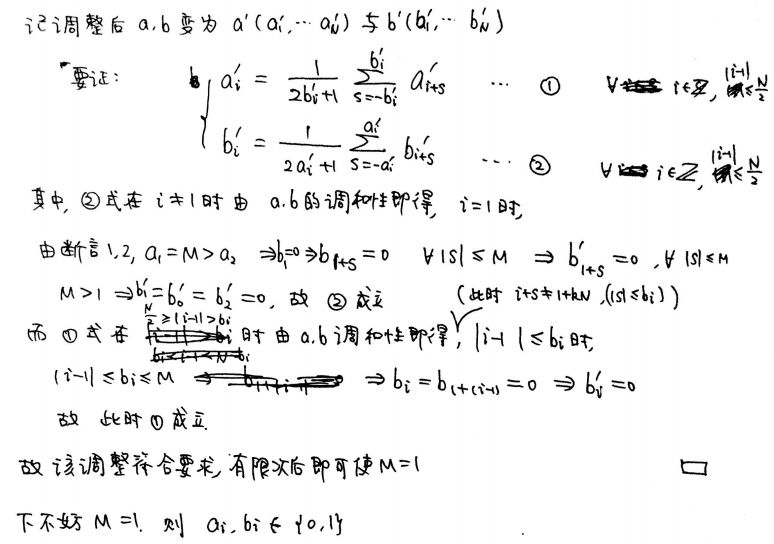 记调整后 a,b 变为 a'(a₁',⋯a_N') 与 b'(b₁',⋯b_N')
要证: { a_i' = \frac{1}{2b_i'+1} \sum_{s=-b_i'}^{b_i'} a_{i+s}' ⋯ ① ∀ i∈ℤ, |i-1| ≤ \frac{N}{2}
b_i' = \frac{1}{2a_i'+1} \sum_{s=-a_i'}^{a_i'} b_{i+s}' ⋯ ② ∀ i∈ℤ, |i-1| ≤ \frac{N}{2}
其中, ②式在 i≠1时 由 a,b 的调和性即得, i=1时,
由断言1,2, a₁=M>a₂ ⇒b₁=0⇒b_{1+s}=0 ∀|s|≤M ⇒ b_{1+s}'=0, ∀|s|≤M
M>1 ⇒b₁'=b₀'=b₂'=0, 故 ② 成立 (此时 i+s≠1+kN, (|s|≤b_i))
而 ①式在 \frac{N}{2}≥|i-1|>b_i 时 由 a,b 调和性即得, |i-1|≤b_i时,
|i-1|≤b_i≤M ⇒ b_i=b_{1+(i-1)}=0 ⇒ b_i'=0
故 此时①成立.
故 该调整符合要求, 有限次后即可使M=1 □
下不妨 M=1. 则 a_i,b_i∈{0,1}